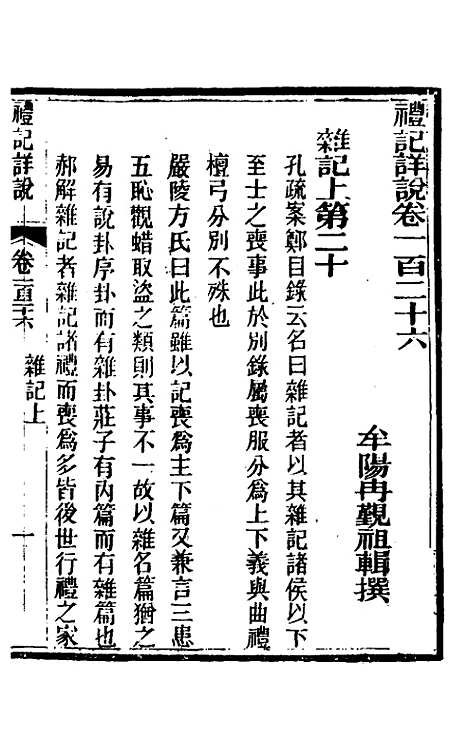 禮記詳說卷一百二十六
牟陽冉覲祖輯撰
雜記上第二十
孔疏案鄭目錄云名曰雜記者以其雜記諸侯以下
至士之喪事此於別錄屬喪服分爲上下義與曲禮
檀弓分別不殊也
嚴陵方氏曰此篇雖以記喪爲主下篇又兼言三患
五恥觀蜡取盜之類則其事不一故以雜名篇猶之
易有說卦序卦而有雜卦莊子有內篇而有雜篇也
郝解雜記者雜記諸禮而喪爲多皆後世行禮之家
禮記詳說
卷一百二十六
雜記上
一